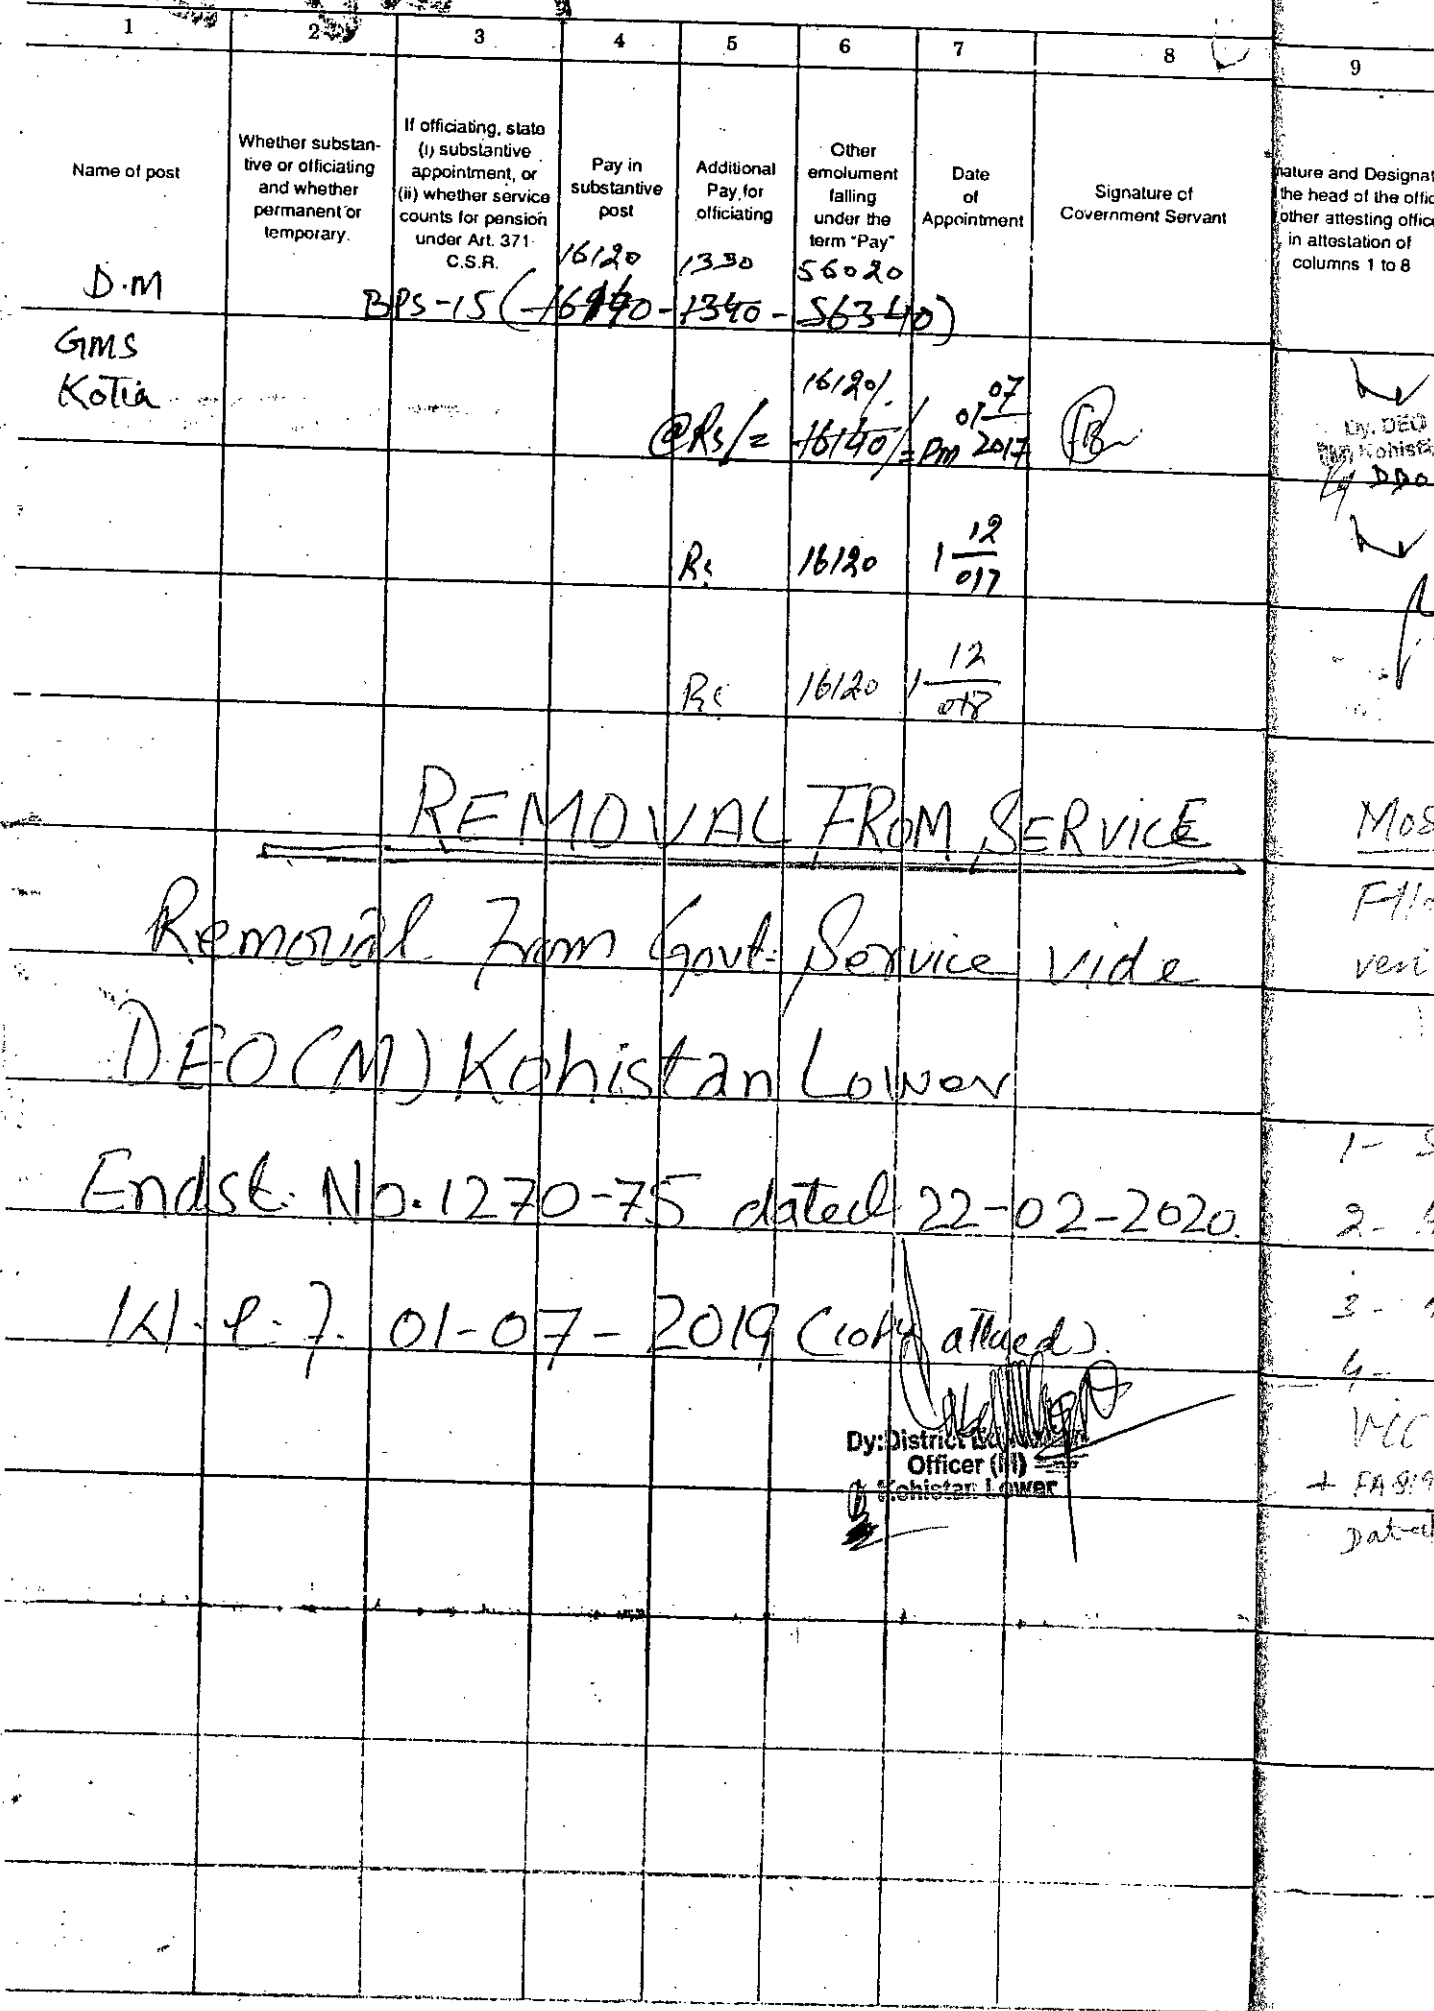 1 2 3 4 5 6 7 8 9
Name of post
Whether substan-
tive or officiating
and whether
permanent or
temporary.
If officiating, state
(i) substantive
appointment, or
(ii) whether service
counts for pension
under Art. 371
C.S.R.
Pay in
substantive
post
Additional
Pay for
officiating
Other
emolument
falling
under the
term "Pay"
Date
of
Appointment
Signature of
Covernment Servant
nature and Designat
the head of the offic
other attesting office
in attestation of
columns 1 to 8
16120 1330 56020
D.M BPS-15 (16140-1340-56340)
GMS
Kotia
16120/. 07
@Rs/= 16140/= 01 2017
Pm
Dy. DEO
(M) Kohist
DDO
Rs 16120 1 12
017
Rs 16120 1 12
018
REMOVAL FROM SERVICE
Removal From Govt: Service vide
DEO (M) Kohistan Lower
Endst: No. 1270-75 dated 22-02-2020.
W.e.f. 01-07-2019 (copy attaed).
Dy:District
Officer (M)
Kohistan Lower
Mos
veri
1-
2-
3-
4-
Dated